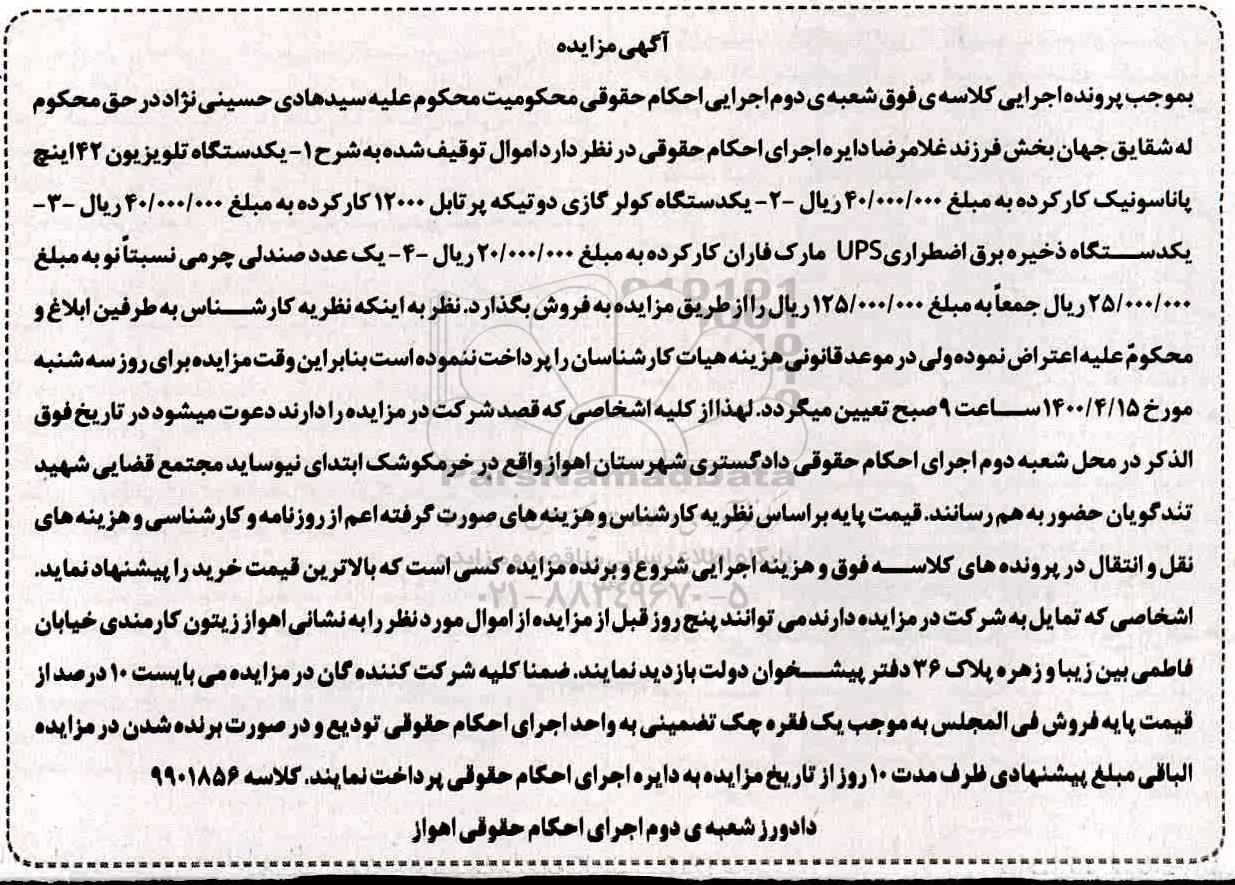 آگهی مزایده
بموجب پرونده اجرایی کلاسه ی فوق شعبه ی دوم اجرایی احکام حقوقی محکومیت محکوم علیه سیدهادی حسینی نژاد در حق محکوم
له شقایق جهان بخش فرزند غلامرضا دایره اجرای احکام حقوقی در نظر دارد اموال توقیف شده به شرح ۱- یکدستگاه تلویزیون ۴۲ اینچ
پاناسونیک کارکرده به مبلغ ۴۰/۰۰۰/۰۰۰ ریال -۲- یکدستگاه کولر گازی دو تیکه پرتابل ۱۲۰۰۰ کارکرده به مبلغ ۴۰/۰۰۰/۰۰۰ ریال -۳-
یکدستگاه ذخیره برق اضطراری UPS مارک فاران کارکرده به مبلغ ۲۰/۰۰۰/۰۰۰ ریال -۴- یک عدد صندلی چرمی نسبتاً نو به مبلغ
۲۵/۰۰۰/۰۰۰ ریال جمعاً به مبلغ ۱۲۵/۰۰۰/۰۰۰ ریال را از طریق مزایده به فروش بگذارد. نظر به اینکه نظریه کارشناس به طرفین ابلاغ و
محکومٌ علیه اعتراض نموده ولی در موعد قانونی هزینه هیات کارشناسان را پرداخت ننموده است بنابراین وقت مزایده برای روز سه شنبه
مورخ ۱۴۰۰/۴/۱۵ ساعت ۹ صبح تعیین میگردد. لهذا از کلیه اشخاصی که قصد شرکت در مزایده را دارند دعوت میشود در تاریخ فوق
الذکر در محل شعبه دوم اجرای احکام حقوقی دادگستری شهرستان اهواز واقع در خرمکوشک ابتدای نیوساید مجتمع قضایی شهید
تندگویان حضور به هم رسانند. قیمت پایه بر اساس نظریه کارشناس و هزینه های صورت گرفته اعم از روزنامه و کارشناسی و هزینه های
نقل و انتقال در پرونده های کلاسه فوق و هزینه اجرایی شروع و برنده مزایده کسی است که بالاترین قیمت خرید را پیشنهاد نماید.
اشخاصی که تمایل به شرکت در مزایده دارند می توانند پنج روز قبل از مزایده از اموال مورد نظر را به نشانی اهواز زیتون کارمندی خیابان
فاطمی بین زیبا و زهره پلاک ۳۶ دفتر پیشخوان دولت بازدید نمایند. ضمنا کلیه شرکت کننده گان در مزایده می بایست ۱۰ درصد از
قیمت پایه فروش فی المجلس به موجب یک فقره چک تضمینی به واحد اجرای احکام حقوقی تودیع و در صورت برنده شدن در مزایده
الباقی مبلغ پیشنهادی ظرف مدت ۱۰ روز از تاریخ مزایده به دایره اجرای احکام حقوقی پرداخت نمایند. کلاسه ۹۹۰۱۸۵۶
دادورز شعبه ی دوم اجرای احکام حقوقی اهواز
ParsNamadData
پایگاه اطلاع رسانی مناقصه و مزایده
۰۲۱-۸۸۳۴۹۶۷۰-۵